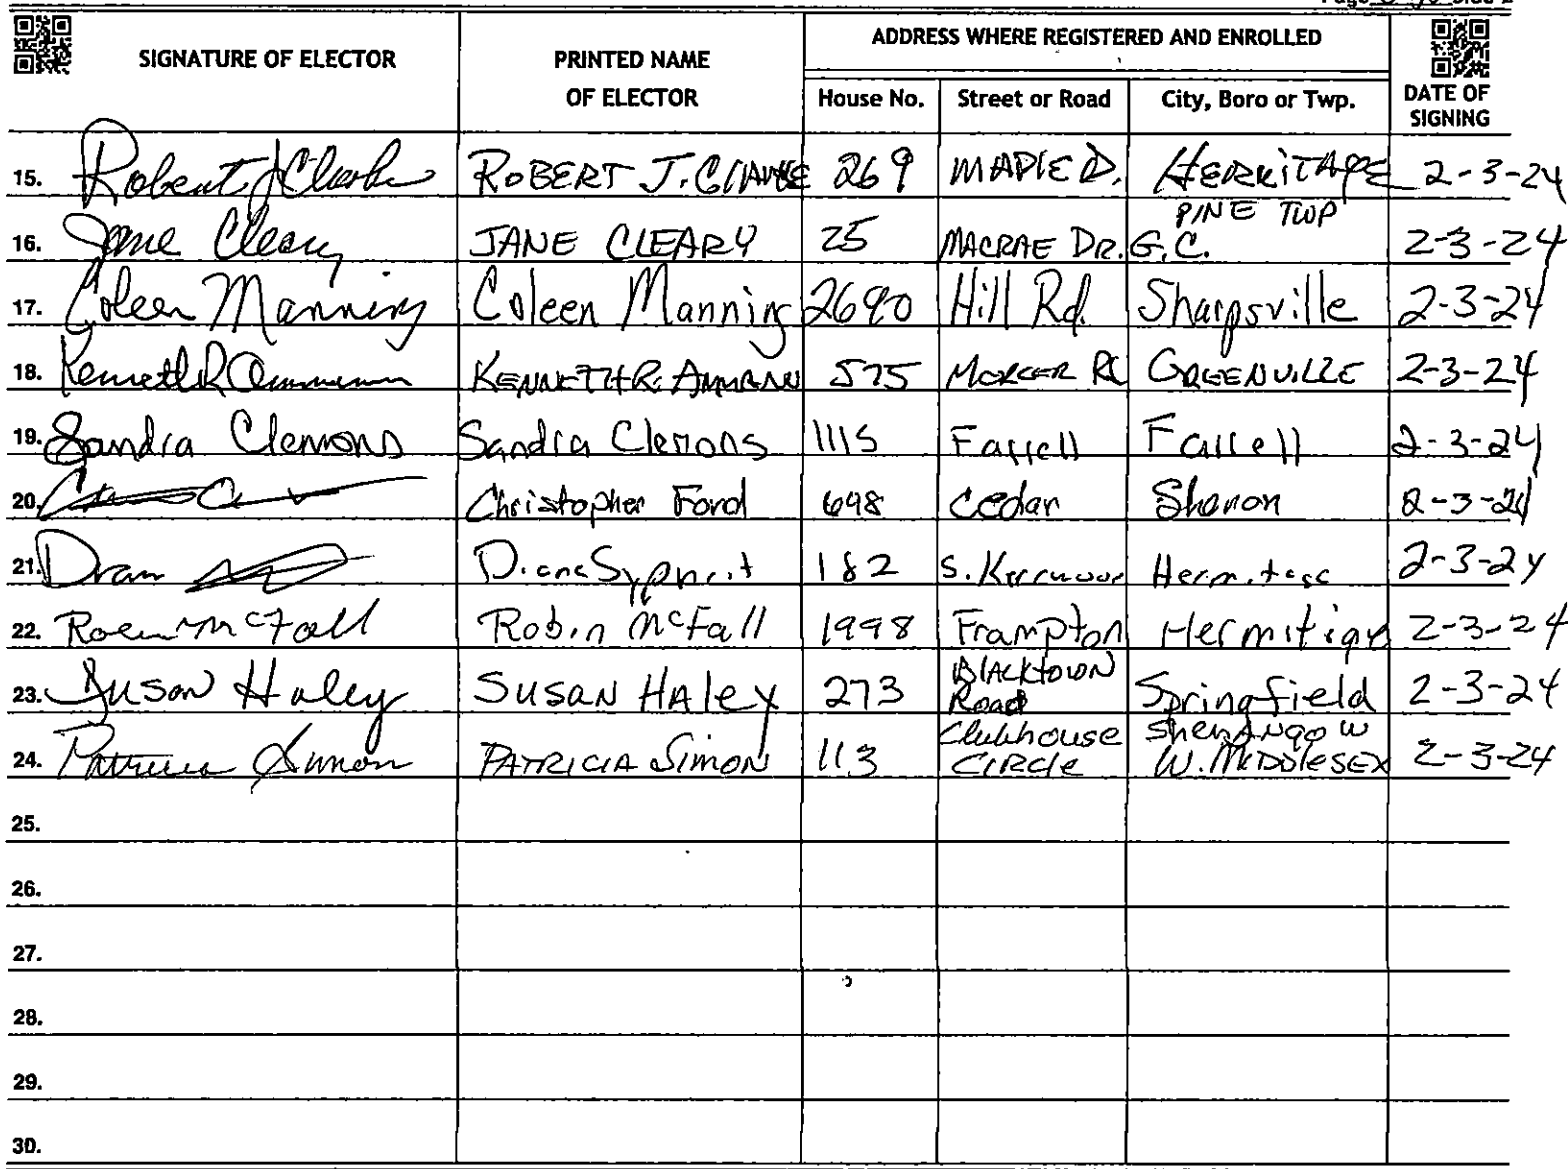 SIGNATURE OF ELECTOR
PRINTED NAME
OF ELECTOR
ADDRESS WHERE REGISTERED AND ENROLLED
House No. Street or Road City, Boro or Twp.
DATE OF
SIGNING
15. Robert J Clarke ROBERT J. 269 MAPLE D. HERMITAGE 2-3-24
PINE TWP
16. Jane Cleary JANE CLEARY 25 MACRAE DR. G.C. 2-3-24
17. Coleen Manning Coleen Manning 2690 Hill Rd. Sharpsville 2-3-24
18. Kenneth R KENNETH R. AMMANN 575 MERCER Rd GREENVILLE 2-3-24
19. Sandra Clemons Sandra Clemons 1115 Farrell Farrell 2-3-24
20. Christopher Ford 698 Cedar Sharon 2-3-24
21. Diane 182 S. Hermitage 2-3-24
22. Robin McFall Robin McFall 1998 Frampton Hermitige 2-3-24
23. Susan Haley SUSAN HALEY 273 BLACKTOWN Road Springfield 2-3-24
24. Patricia Simon PATRICIA SIMON 113 Clubhouse CIRCLE Shenango W. MIDDLESEX 2-3-24
25.
26.
27.
28.
29.
30.